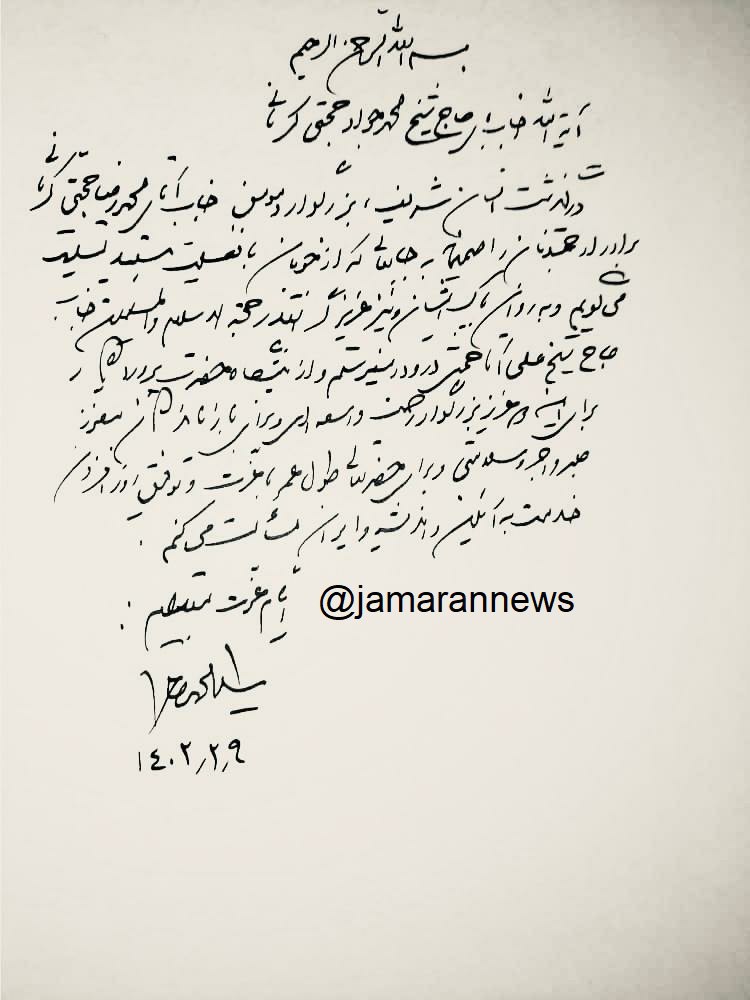 بسم الله الرحمن الرحیم
آیة الله جناب آقای حاج شیخ محمدجواد حجتی کرمانی
درگذشت انسان شریف، بزرگوار و مومن جناب آقای محمدرضا حجتی کرمانی
برادر ارجمندتان را صمیمانه به جنابعالی که از خوبان با فضیلت هستید تسلیت
می‌گویم و به روان پاک ایشان و نیز عزیز گرانقدر حجة الاسلام والمسلمین جناب
حاج شیخ علی آقا حجتی درود می‌فرستم و از پیشگاه حضرت پروردگار
برای این دو عزیز بزرگوار رحمت واسعه الهی و برای بازماندگان معزز
صبر و اجر و سلامتی و برای حضرتعالی طول عمر با عزت و توفیق روزافزون
خدمت به آئین و اندیشه و ایران مسألت می‌کنم.
ایام عزت مستدام
@jamarannews
سیدمحمد خاتمی
۱٤۰۲٫۲٫۹